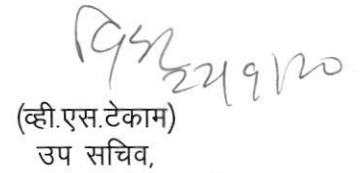 (व्ही.एस.टेकाम)
उप सचिव,